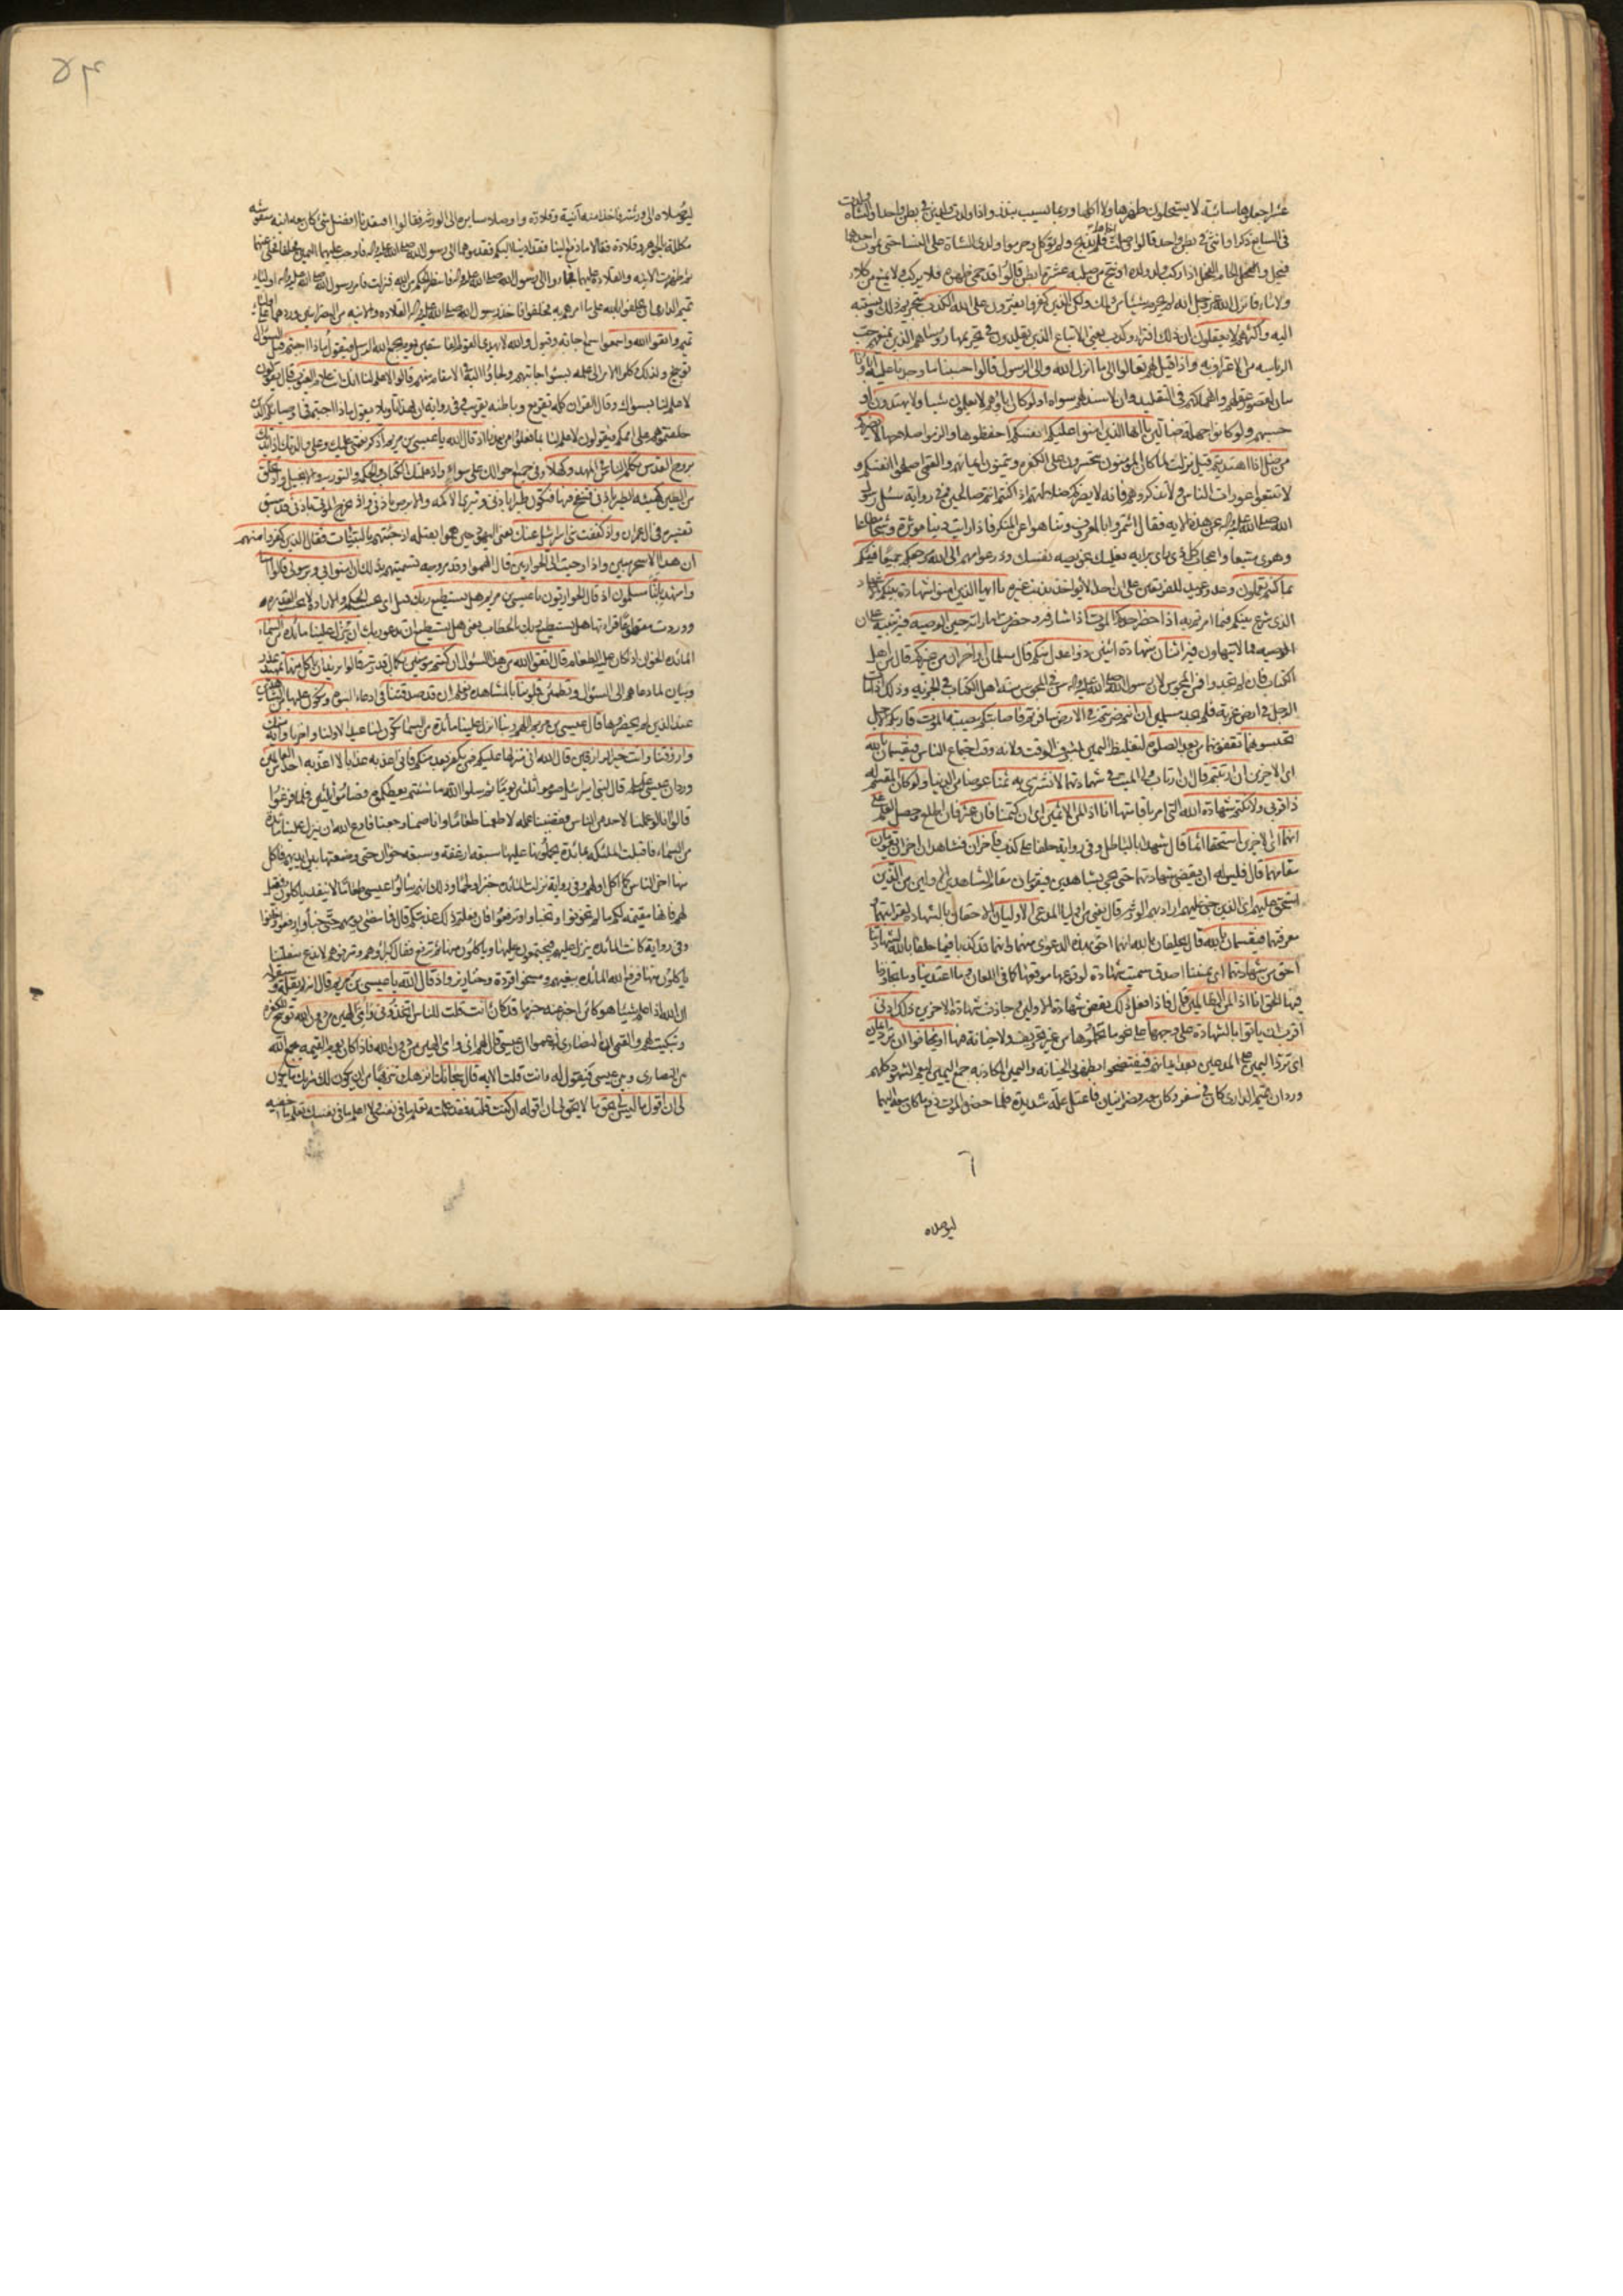 عشرا جعلوها سائبة لا يستحلون ظهرها ولا اكلها وربما تسيب بنذر واذا ولدت
في السابع ذكرا وانثى في بطن واحد قالوا وصلت اخاها فلم تذبح ولم يؤكل وحرموا ولدي الشاة على النساء حتى يموت احدهما
فيحل والحام الفحل اذا ركب ولد ولده او نتج من صلبه عشرة ابطن قالوا قد حمى ظهره فلا يركب ولا يمنع من كلاء
ولا ماء فانزل الله عز وجل انه لم يحرم شيئا من ذلك ولكن الذين كفروا يفترون على الله الكذب بتحريم ذلك ونسبته
اليه واكثرهم لا يعقلون ان ذلك افتراء وكذب يعني الاتباع الذين يقلدون في تحريمها رؤساءهم الذين يمنعهم حب
الرياسة من الاعتراف به واذا قيل لهم تعالوا الى ما انزل الله والى الرسول قالوا حسبنا ما وجدنا عليه اباءنا
بيان لقصور عقولهم وانهماكهم في التقليد وان لا سند لهم سواه اولو كان اباؤهم لا يعلمون شيئا ولا يهتدون اي
حسبهم ولو كانوا جهلة ضالين يا ايها الذين امنوا عليكم انفسكم احفظوها والزموا صلاحها لا يضركم
من ضل اذا اهتديتم قيل نزلت لما كان المؤمنون يتحسرون على الكفرة ويتمنون ايمانهم والقمي اصلحوا انفسكم و
لا تتبعوا عورات الناس ولا تذكروهم فانه لا يضركم ضلالتهم اذا كنتم انتم صالحين وفي رواية سئل رسول
الله صلى الله عليه واله عن هذه الاية فقال ائتمروا بالمعروف وتناهوا عن المنكر فاذا رايت دنيا مؤثرة وشحا مطاعا
وهوى متبعا واعجاب كل ذي راي برايه فعليك بخويصة نفسك وذر عوامهم الى الله مرجعكم جميعا فينبئكم
بما كنتم تعملون وعد ووعيد للفريقين على ان احدا لا يؤاخذ بذنب غيره يا ايها الذين امنوا شهادة بينكم
الذي شرع بينكم فيما امرتم به اذا حضر احدكم الموت اذا شارفه وحضرت اماراته حين الوصية فيه تنبيه على ان
الوصية مما لا يتهاون فيه اثنان شهادة اثنين ذوا عدل منكم قال مسلمان او اخران من غيركم قال من اهل
الكتاب فان لم تجدوا فمن المجوس لان رسول الله صلى الله عليه واله سن في المجوس سنة اهل الكتاب في الجزية وذلك اذا مات
الرجل في ارض غربة فلم يجد مسلمين ان انتم ضربتم في الارض سافرتم فاصابتكم مصيبة الموت قاربكم الاجل
تحبسونهما تقفونهما من بعد الصلوة لتغليظ اليمين بشرف الوقت ولانه وقت اجتماع الناس فيقسمان بالله
اي الاخرين ان ارتبتم قال ان ارتاب ولي الميت في شهادتهما لا نشتري به ثمنا عوضا من الدنيا ولو كان المقسم له
ذا قربى ولا نكتم شهادة الله التي امرنا باقامتها انا اذا لمن الاثمين اي ان كتمنا فان عثر فان اطلع وحصل العلم على
انهما اي الاخرين استحقا اثما قال شهدا بالباطل وفي رواية حلفا على كذب فاخران فشاهدان اخران يقومان
مقامهما قال فليس له ان ينقض شهادتهما حتى يجيء بشاهدين فيقومان مقام الشاهدين الاولين من الذين
استحق عليهم اي الذين جنى عليهم اراد بهم الورثة قال يعني من اولياء المدعي الاوليان الاحقان بالشهادة لقرابتهما و
معرفتهما فيقسمان بالله قال يحلفان بالله انهما احق بهذه الدعوى منهما وانهما قد كذبا فيما حلفا بالله لشهادتنا
احق من شهادتهما اي يميننا اصدق سميت شهادة لوقوعها موقعها كما في اللعان وما اعتدينا وما تجاوزنا
فيها الحق انا اذا لمن الظالمين قال فاذا فعل ذلك نقض شهادة الاولين وجازت شهادة الاخرين ذلك ادنى
اقرب ان ياتوا بالشهادة على وجهها على نحو ما تحملوها من غير تحريف ولا خيانة فيها او يخافوا ان ترد ايمان
اي ترد اليمين على المدعين بعد ايمانهم فيفتضحوا بظهور الخيانة واليمين الكاذبة جمع اليمين ليعم الشهود كلهم
ورد ان تميم الداري كان في سفر وكان معه نصرانيان فاعتل علة شديدة فلما حضره الموت دفع ما كان معه اليهما
٦
ليوصلاه
٥٣
ليوصلاه الى ورثته فاخذا منه آنية وقلادة واوصلا سايره الى الورثة فقالوا افتقدنا افضل شيء كان معه انية منقوشة
مكللة بالجوهر وقلادة فقالا ما دفع الينا فقد اديناه اليكم فقدموهما الى رسول الله صلى الله عليه واله فاوجب عليهما اليمين فحلفا فخلى عنهما
ثم ظهرت الانية والقلادة عليهما فجاؤا الى رسول الله صلى الله عليه واله فانتظر الحكم من الله فنزلت فامر رسول الله صلى الله عليه واله اولياء
تميم الداري ان يحلفوا بالله على ما امرهم به فحلفوا فاخذ رسول الله صلى الله عليه واله القلادة والانية من النصرانيين وردهما على اولياء
تميم واتقوا الله واسمعوا سمع اجابة وقبول والله لا يهدي القوم الفاسقين يوم يجمع الله الرسل فيقول ماذا اجبتم قيل السؤال
توبيخ ولذلك وكلوا الامر الى علمه بسوء اجابتهم ولجاؤا اليه في الانتقام منهم قالوا لا علم لنا انك انت علام الغيوب قال يقولون
لا علم لنا بسواك وقال القران كله تقريع وباطنه تقريب وفي رواية ان لهذا تاويلا يقول ماذا اجبتم في اوصيائكم الذين
خلفتموهم على اممكم فيقولون لا علم لنا بما فعلوا من بعدنا اذ قال الله يا عيسى بن مريم اذكر نعمتي عليك وعلى والدتك اذ ايدتك
بروح القدس تكلم الناس في المهد وكهلا وفي جميع احوالك على سواء واذ علمتك الكتاب والحكمة والتورية والانجيل واذ تخلق
من الطين كهيئة الطير باذني فتنفخ فيها فتكون طيرا باذني وتبرئ الاكمه والابرص باذني واذ تخرج الموتى باذني قد سبق
تفسيره في ال عمران واذ كففت بني اسرائيل عنك يعني اليهود حين هموا بقتله اذ جئتهم بالبينات فقال الذين كفروا منهم
ان هذا الا سحر مبين واذ اوحيت الى الحواريين قال الهموا وقد مر وجه تسميتهم بذلك ان امنوا بي وبرسولي قالوا امنا
واشهد باننا مسلمون اذ قال الحواريون يا عيسى بن مريم هل يستطيع ربك قيل اي بحسب الحكمة والارادة لا بحسب القدرة
ووردت مقطوعا قراءتها هل تستطيع ربك بالخطاب يعني هل تستطيع ان تدعو ربك ان ينزل علينا مائدة من السماء
المائدة الخوان اذا كان عليه الطعام قال اتقوا الله من هذا السؤال ان كنتم مؤمنين بكمال قدرته قالوا نريد ان ناكل منها تمهيد عذر
وبيان لما دعاهم الى السؤال وتطمئن قلوبنا بالمشاهدة ونعلم ان قد صدقتنا في ادعاء النبوة ونكون عليها من الشاهدين
عند الذين لم يحضروها قال عيسى بن مريم اللهم ربنا انزل علينا مائدة من السماء تكون لنا عيدا لاولنا واخرنا واية منك
وارزقنا وانت خير الرازقين قال الله اني منزلها عليكم فمن يكفر بعد منكم فاني اعذبه عذابا لا اعذبه احدا من العالمين
ورد ان عيسى عليه السلام قال لبني اسرائيل صوموا ثلثين يوما ثم سلوا الله ما شئتم يعطكموه فصاموا ثلثين فلما فرغوا
قالوا انا لو عملنا لاحد من الناس فقضينا عمله لاطعمنا طعاما وانا صمنا وجعنا فادع الله ان ينزل علينا مائدة
من السماء فاقبلت الملئكة بمائدة يحملونها عليها سبعة ارغفة وسبعة احوات حتى وضعتها بين ايديهم فاكل
منها اخر الناس كما اكل اولهم وفي رواية نزلت المائدة خبزا ولحما وذلك انهم سالوا عيسى طعاما لا ينفد ياكلون فقيل
لهم فانها مقيمة لكم ما لم تخونوا وتخبؤا وترفعوا فان فعلتم ذلك عذبتكم قال فما مضى يومهم حتى خبؤا ورفعوا وخانوا
وفي رواية كانت المائدة تنزل عليهم فيجتمعون عليها وياكلون منها ثم ترفع فقال كبراؤهم ومترفوهم لا ندع سفلتنا
ياكلون منها فرفع الله المائدة ببغيهم ومسخوا قردة وخنازير واذ قال الله يا عيسى بن مريم قال لم يقله وسيقوله
ان الله اذا علم شيئا هو كائن اخبر عنه خبر ما قد كان ءانت قلت للناس اتخذوني وامي الهين من دون الله توبيخ للكفرة
وتبكيت لهم والقمي ان النصارى زعموا ان عيسى قال لهم اني وامي الهين من دون الله فاذا كان يوم القيمة يجمع الله
بين النصارى وبين عيسى فيقول له ءانت قلت الاية قال سبحانك انزهك تنزيها من ان يكون لك شريك ما يكون
لي ان اقول ما ليس لي بحق ما لا يحق لي ان اقوله ان كنت قلته فقد علمته تعلم ما في نفسي ولا اعلم ما في نفسك تعلم ما اخفيه